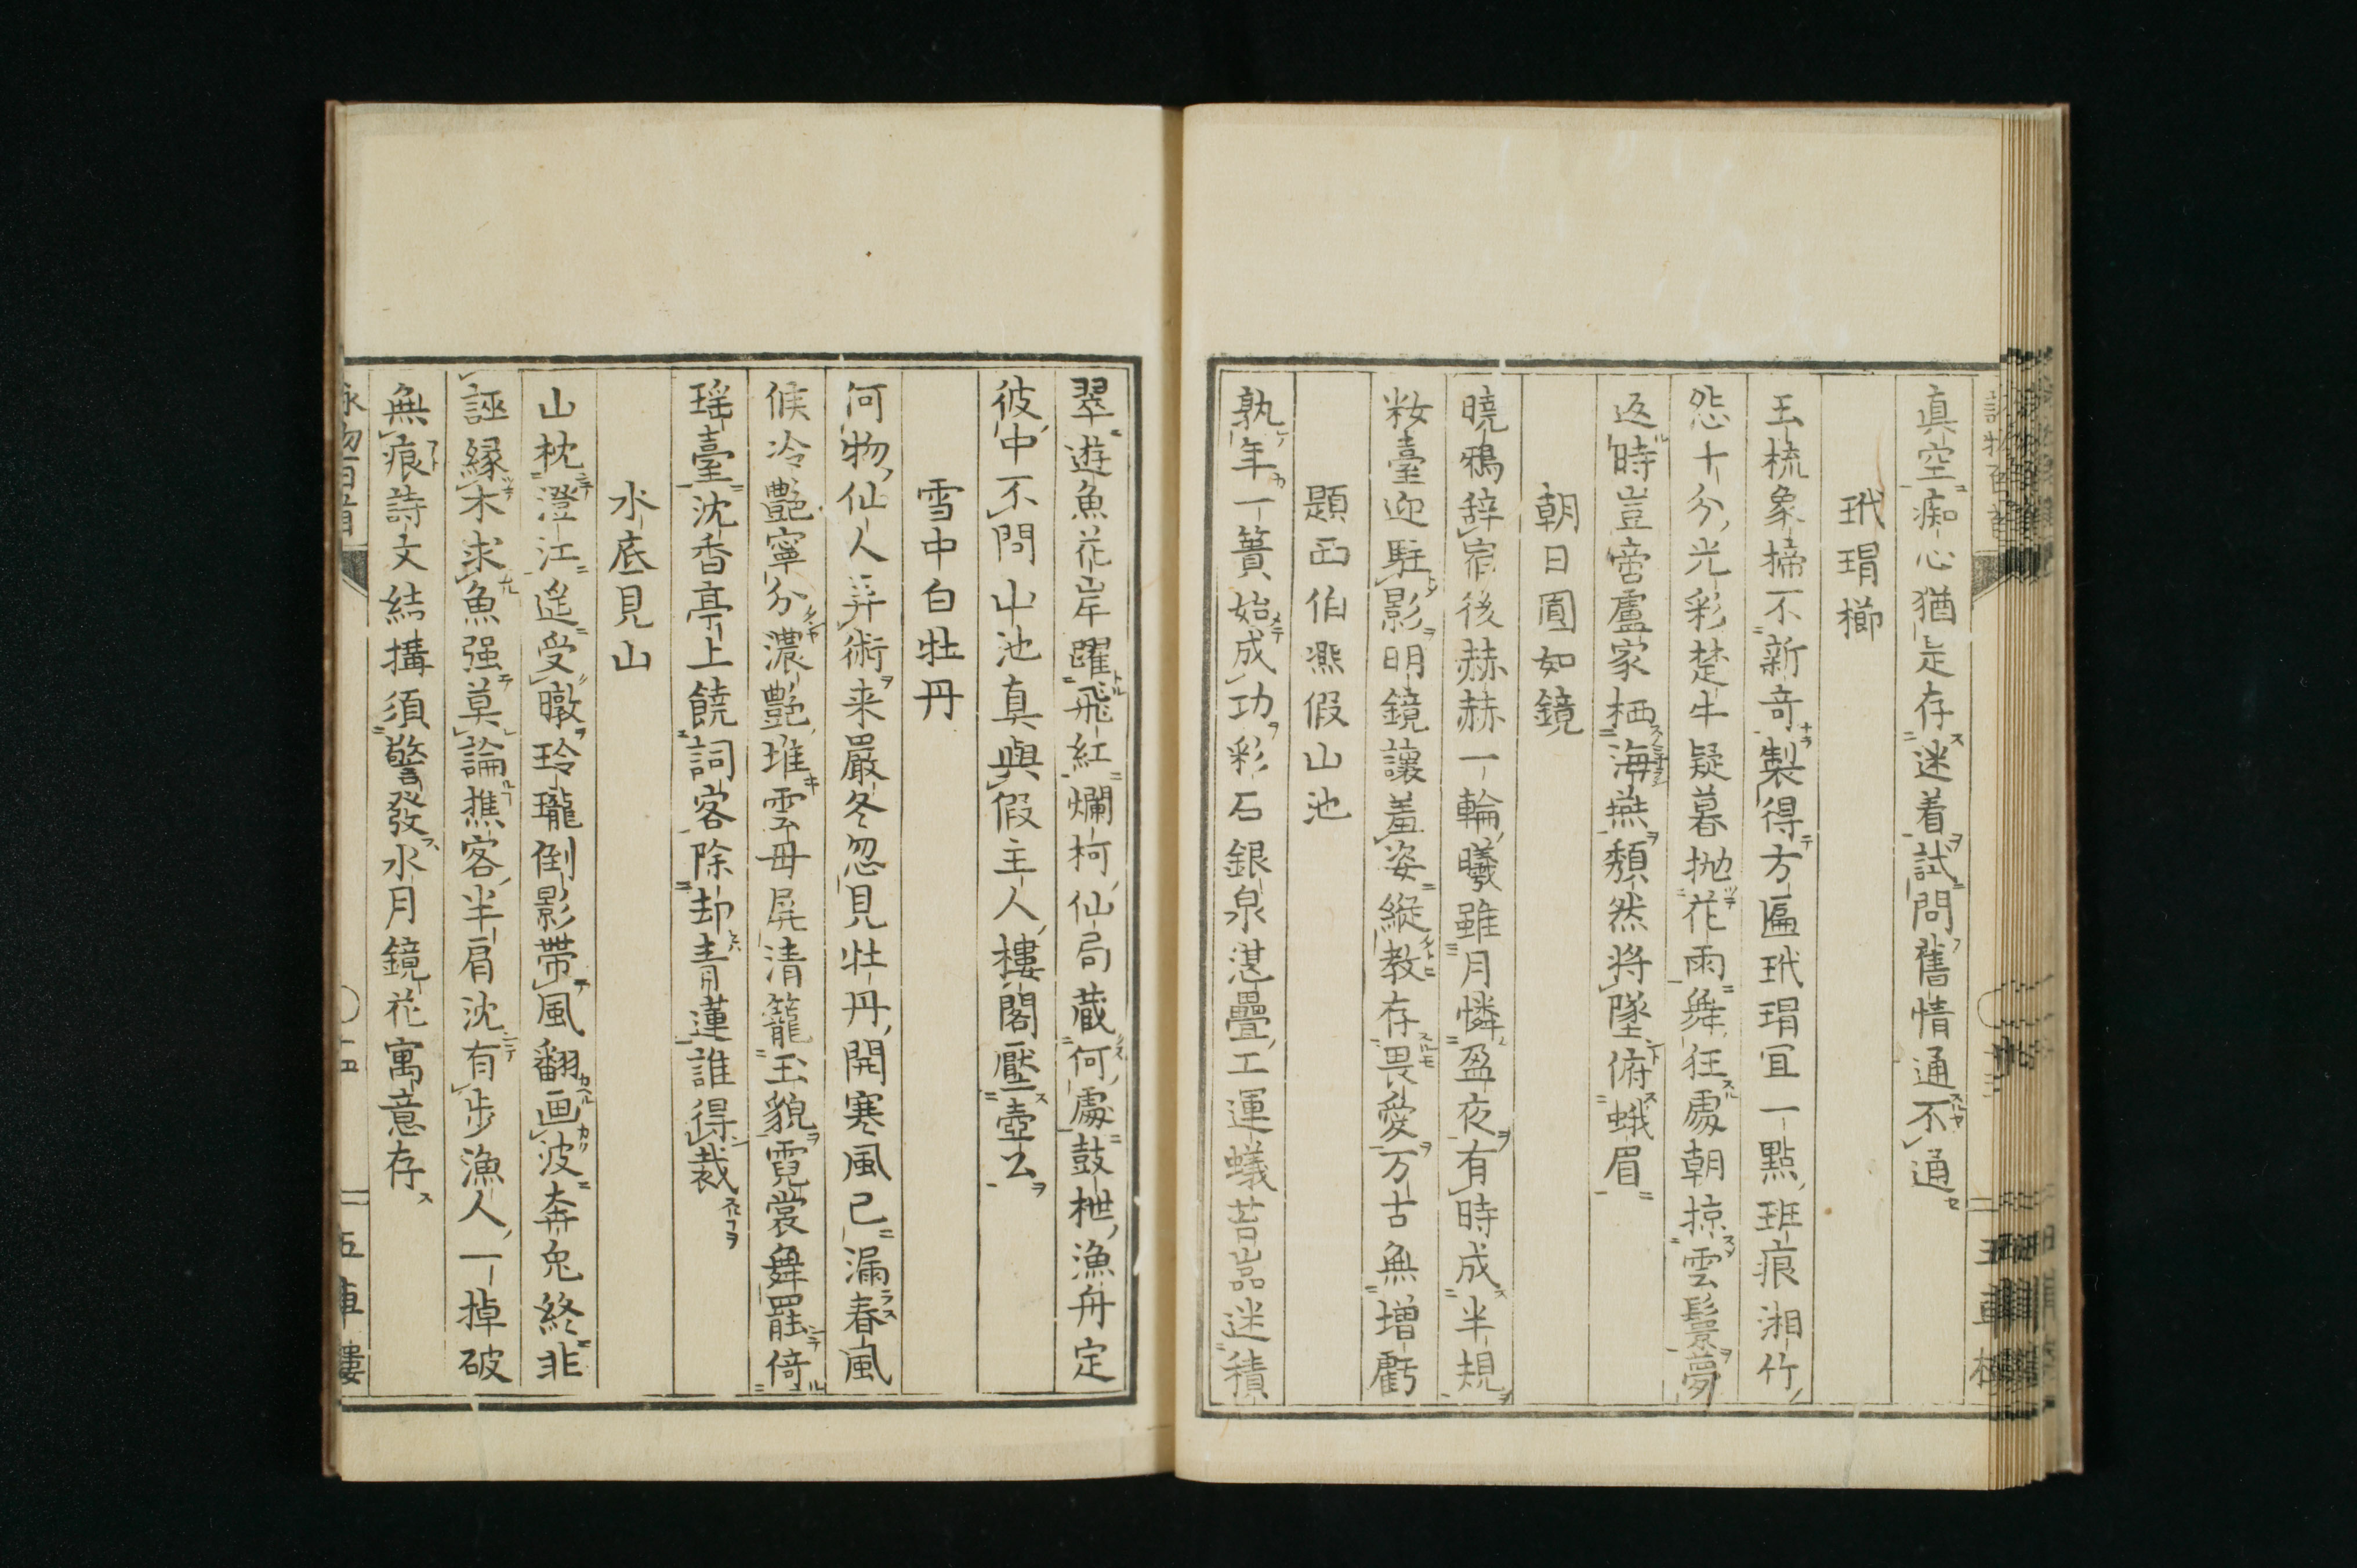 真空痴心猶是存迷着試問舊情通不通
玳瑁櫛
玉梳象掃不新奇製得方匾玳瑁宜一點班痕湘竹
怨十分光彩楚牛疑暮抛花雨舞狂處朝掠雲鬟夢
返時豈啻盧家栖海燕頽然将墜俯蛾眉
朝日圓如鏡
曉鴉辞宿後赫赫一輪曦雖月憐盈夜有時成半規
粧臺迎駐影明鏡讓羞姿縱教存畏愛万古無増虧
題西伯熈假山池
孰年一簣始成功彩石銀泉湛疊工運蟻苔嵓迷積
翠遊魚花岸躍飛紅爛柯仙局蔵何處鼓枻漁舟定
彼中不問山池真與假主人樓閣壓壺公
雪中白牡丹
何物仙人弄術来嚴冬忽見牡丹開寒風已漏春風
候冷艷寧分濃艷堆雲母屏清籠玉貌霓裳舞罷倚
瑶臺沈香亭上饒詞客除却青蓮誰得裁
水底見山
山枕澄江遥受暾玲瓏倒影帶風翻画波奔兎終非
誣縁木求魚强莫論樵客半肩沈有歩漁人一掉破
無痕詩文結搆須警發水月鏡花寓意存
五車樓